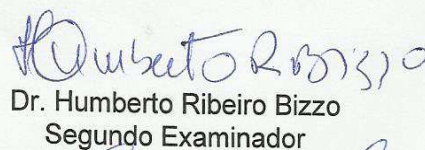 Humberto R Bizzo
Dr. Humberto Ribeiro Bizzo
Segundo Examinador